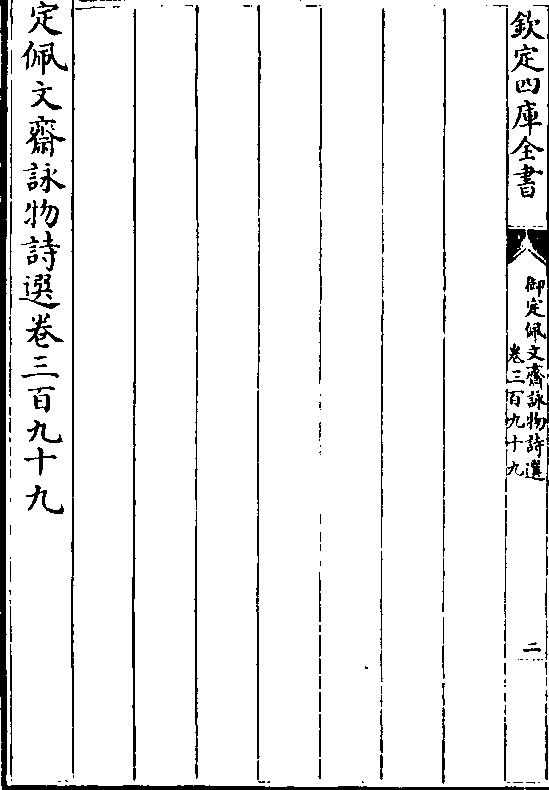 欽定四庫全書
御定佩文齋詠物詩選
卷三百九十九
二
定佩文齋詠物詩選卷三百九十九